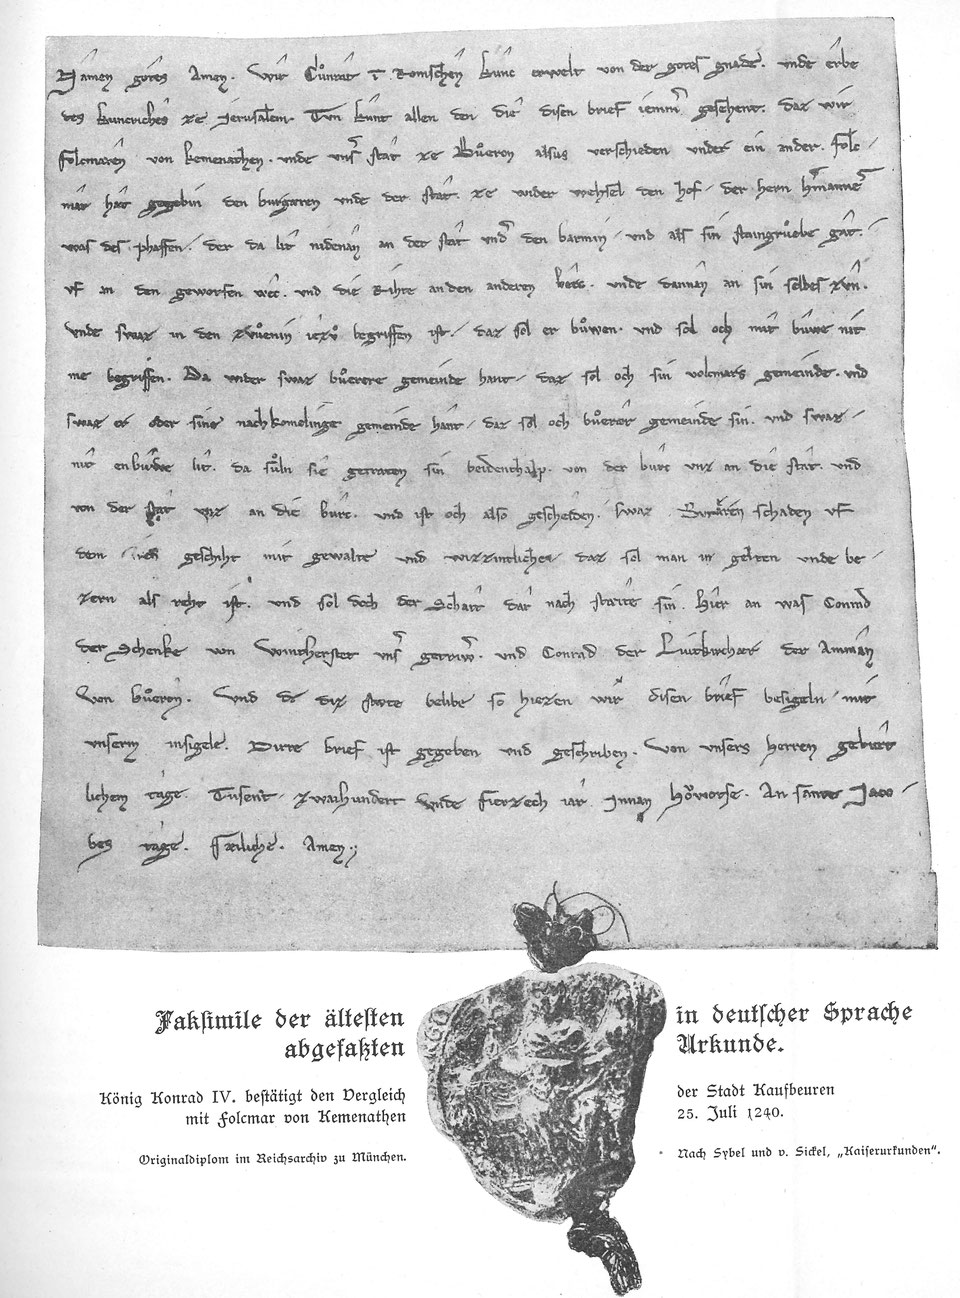 Namen gotes Amen. Wir Cůnrat
kunc erwelt von der gotes gnade. vnde erbe
des kunericches ze Jerusalem. Tvn kunt allen den die disen brief geschent. daz wir
Folcmaren von kemenathen. vnde stat ze Bůeron alsus verschieden vnder ein ander. Folc-
mar hat gegebin den burgaren vnde der stat. ze wehsel den hof. der hern
was des phaffen. der da lit nidenan an der stat den barmin. vnd als sin staingrůebe gat.
vf an den geworfen wec. vnd die Rihte an den anderen vnde dannan an sin selbes zvn.
vnde swaz in den begriffen ist. daz sol er bůwen. vnd sol och nit
me begriffen. Da vnder swaz bůerere gemeinde hant. daz sol och sin volcmars gemeinde. vnd
swaz er oder sine nachkomelinge gemeinde hant. daz sol och bůerer gemeinde sin. vnd swaz
nit lit. da sůln sie getraten sin beidenthalp. von der burc vnz an die stat. vnd
von der stat vnz an die burc. vnd ist och also gescheiden. Swaz schaden vf
dem geschiht mit gewalte vnd daz sol man in gelten vnde be-
zern als reht ist. vnd sol doch der Schatz dar nach state sin. Hier an was Conrad
der Schenke von Wintherstet vnd Conrad der Luitkircher der Amman
Von bůeron. Vnd dc diz state belibe so hiezen wir disen brief besigeln. mit
unserm insigele. Dirre brief ist gegeben vnd geschriben. Von vnsers herren gebürt
lichem tage. Tusent. zwaihundert vnde fierzech iar. An sante Jaco-
bes tage. Amen.
Faksimile der ältesten in deutscher Sprache
abgefaßten Urkunde.
König Konrad IV. bestätigt den Vergleich der Stadt Kaufbeuren
mit Folcmar von Kemenathen 25. Juli 1240.
Originaldiplom im Reichsarchiv zu München. Nach Sybel und v. Sickel, „Kaiserurkunden“.